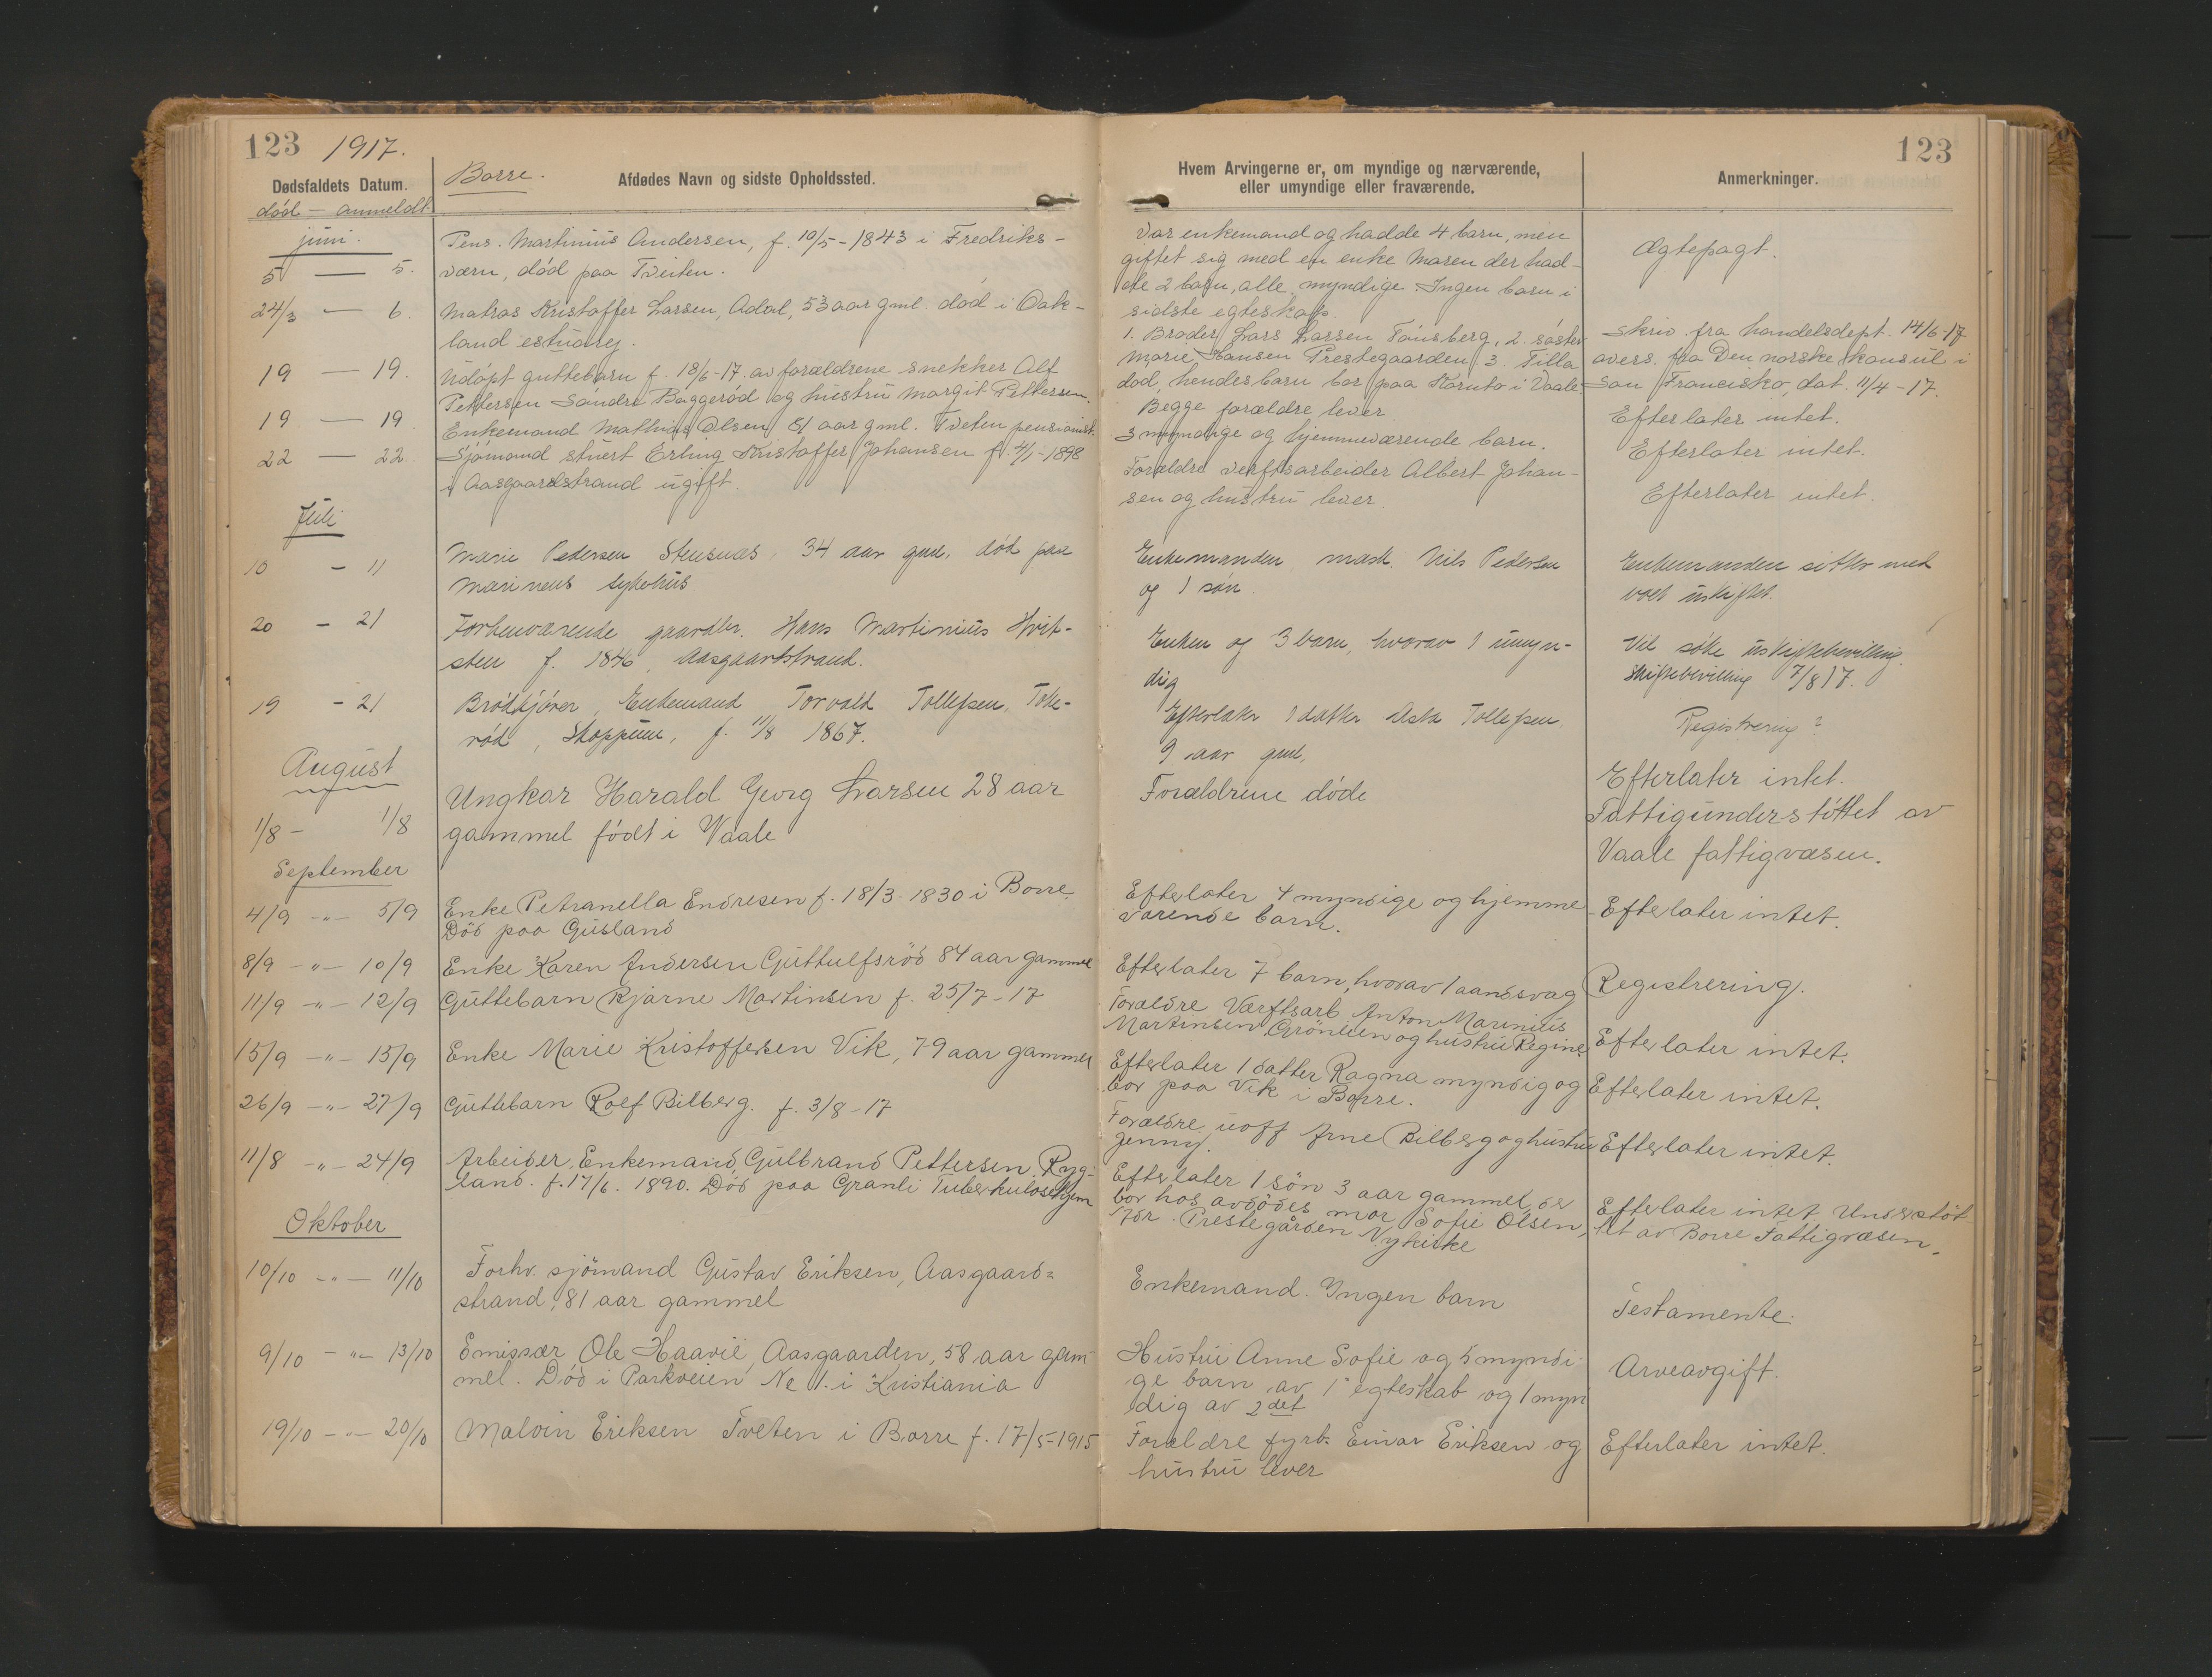 123 1917.
Dødsfaldets Datum.
død — anmeldt.
Borre.
Afdødes Navn og sidste Opholdssted.
juni.
5 — 5.
Pens. Martinius Andersen, f. 10/5-1843 i Fredriks-
værn, død paa Tveiten.
24/3 — 6.
Matros Kristoffer Larsen, Adal, 53 aar gml. død i Oak-
land
19 — 19.
Udøpt guttebarn f. 18/6-17. av forældrene snekker Alf
Pettersen Søndre Baggerød og hustru Margit Pettersen.
19 — 19
Enkemand Mathias Olsen 81 aar gml. Tveten pensionist.
22 — 22.
Sjømand stuert Erling Kristoffer Johansen f. 4/1-1898
i Aasgaardstrand ugift.
Juli
10 - 11
Marie Pedersen Stensnæs, 34 aar gml, død paa
Marinens sykehus
20 - 21
Forhenværende gaardbr. Hans Martinius Hvit-
sten f. 1846, Aasgaardstrand.
19 - 21
Brødkjører, Enkemand Torvald Tollefsen, Toke-
rød, Skoppum, f. 11/8 1867.
August
1/8 - 1/8
Ungkar Harald Georg Larsen 28 aar
gammel født i Vaale
September
4/9 -"- 5/9
Enke Petranella Endresen f. 18/3-1830 i Borre.
Død paa Gusland
8/9 -"- 10/9
Enke Karen Andersen Guttulfsrød 84 aar gammel
11/9 -"- 12/9
Guttebarn Bjarne Martinsen f. 25/7-17
15/9 -"- 15/9
Enke Marie Kristoffersen Vik, 79 aar gammel
26/9 -"- 27/9
Guttebarn Rolf Bilberg. f. 3/8-17
11/8 -"- 24/9
Arbeider, Enkemand, Gulbrand Pettersen. Ryg-
land. f. 17/6. 1890. Død paa Granli Tuberkulosehjem
Oktober
10/10 -"- 11/10
Forhv. sjömand Gustav Eriksen, Aasgaard=
strand, 81 aar gammel
9/10 -"- 13/10
Emissær Ole Haavie, Aasgaarden, 58 aar gam-
mel. Död i Parkveien No 1. i Kristiania
19/10 -"- 20/10
Malvin Eriksen Tveten i Borre f. 17/5-1915
123
Hvem Arvingerne er, om myndige og nærværende,
eller umyndige eller fraværende.
Anmerkninger.
Var enkemand og hadde 4 barn, men
giftet sig med en enke Maren der had-
de 2 barn, alle myndige. Ingen barn i
sidste egteskap.
Ægtepagt.
1. Broder Lars Larsen Tønsberg, 2. søster
Marie Hansen Prestegaarden, 3. Tilla
død, hendes barn bor paa i Vaale
Skriv. fra handelsdept. 14/6-17
avers. fra Den norske konsul i
San Francisko, dat. 11/4-17.
Begge forældre lever.
Efterlater intet.
3 myndige og hjemmeværende barn.
Efterlater intet.
Forældre verftsarbeider Albert Johan-
sen og hustru lever.
Efterlater intet.
Enkemanden mask. Nils Pedersen
og 1 søn.
Enkemanden sitter med
boet uskiftet.
Enken og 3 barn, hvorav 1 umyn-
dig
Vil søke uskiftebevilling.
Skiftebevilling 7/8 17.
Efterlater 1 datter Asta Tollefsen,
9 aar gml,
Registrering?
Forældrene døde
Efterlater intet.
Fattigunderstöttet av
Vaale fattigvæsen.
Efterlater 4 myndige og hjemme-
værende barn.
Efterlater intet.
Efterlater 7 barn, hvorav 1 aandsvag
Registrering.
Forældre Værftsarb. Anton Marinius
Martinsen, Grönlien og hustru Regine.
Efterlater intet.
Efterlater 1 datter Ragna myndig og
bor paa Vik i Borre.
Efterlater intet.
Forældre uoff Arne Bilberg og hustru
Jenny.
Efterlater intet.
Efterlater 1 sön 3 aar gammel, der
bor hos avdödes mor Sofie Olsen,
Prestegården Nykirke
Efterlater intet Understöt
tet av Borre Fattigvæsen.
Enkemand. Ingen barn
Testamente.
Hustru Anne Sofie og 5 myndi-
ge barn av 1 egteskab og 1 myn
dig av 2det
Arveavgift.
Forældre fyrb. Einar Eriksen og
hustru lever
Efterlater intet.